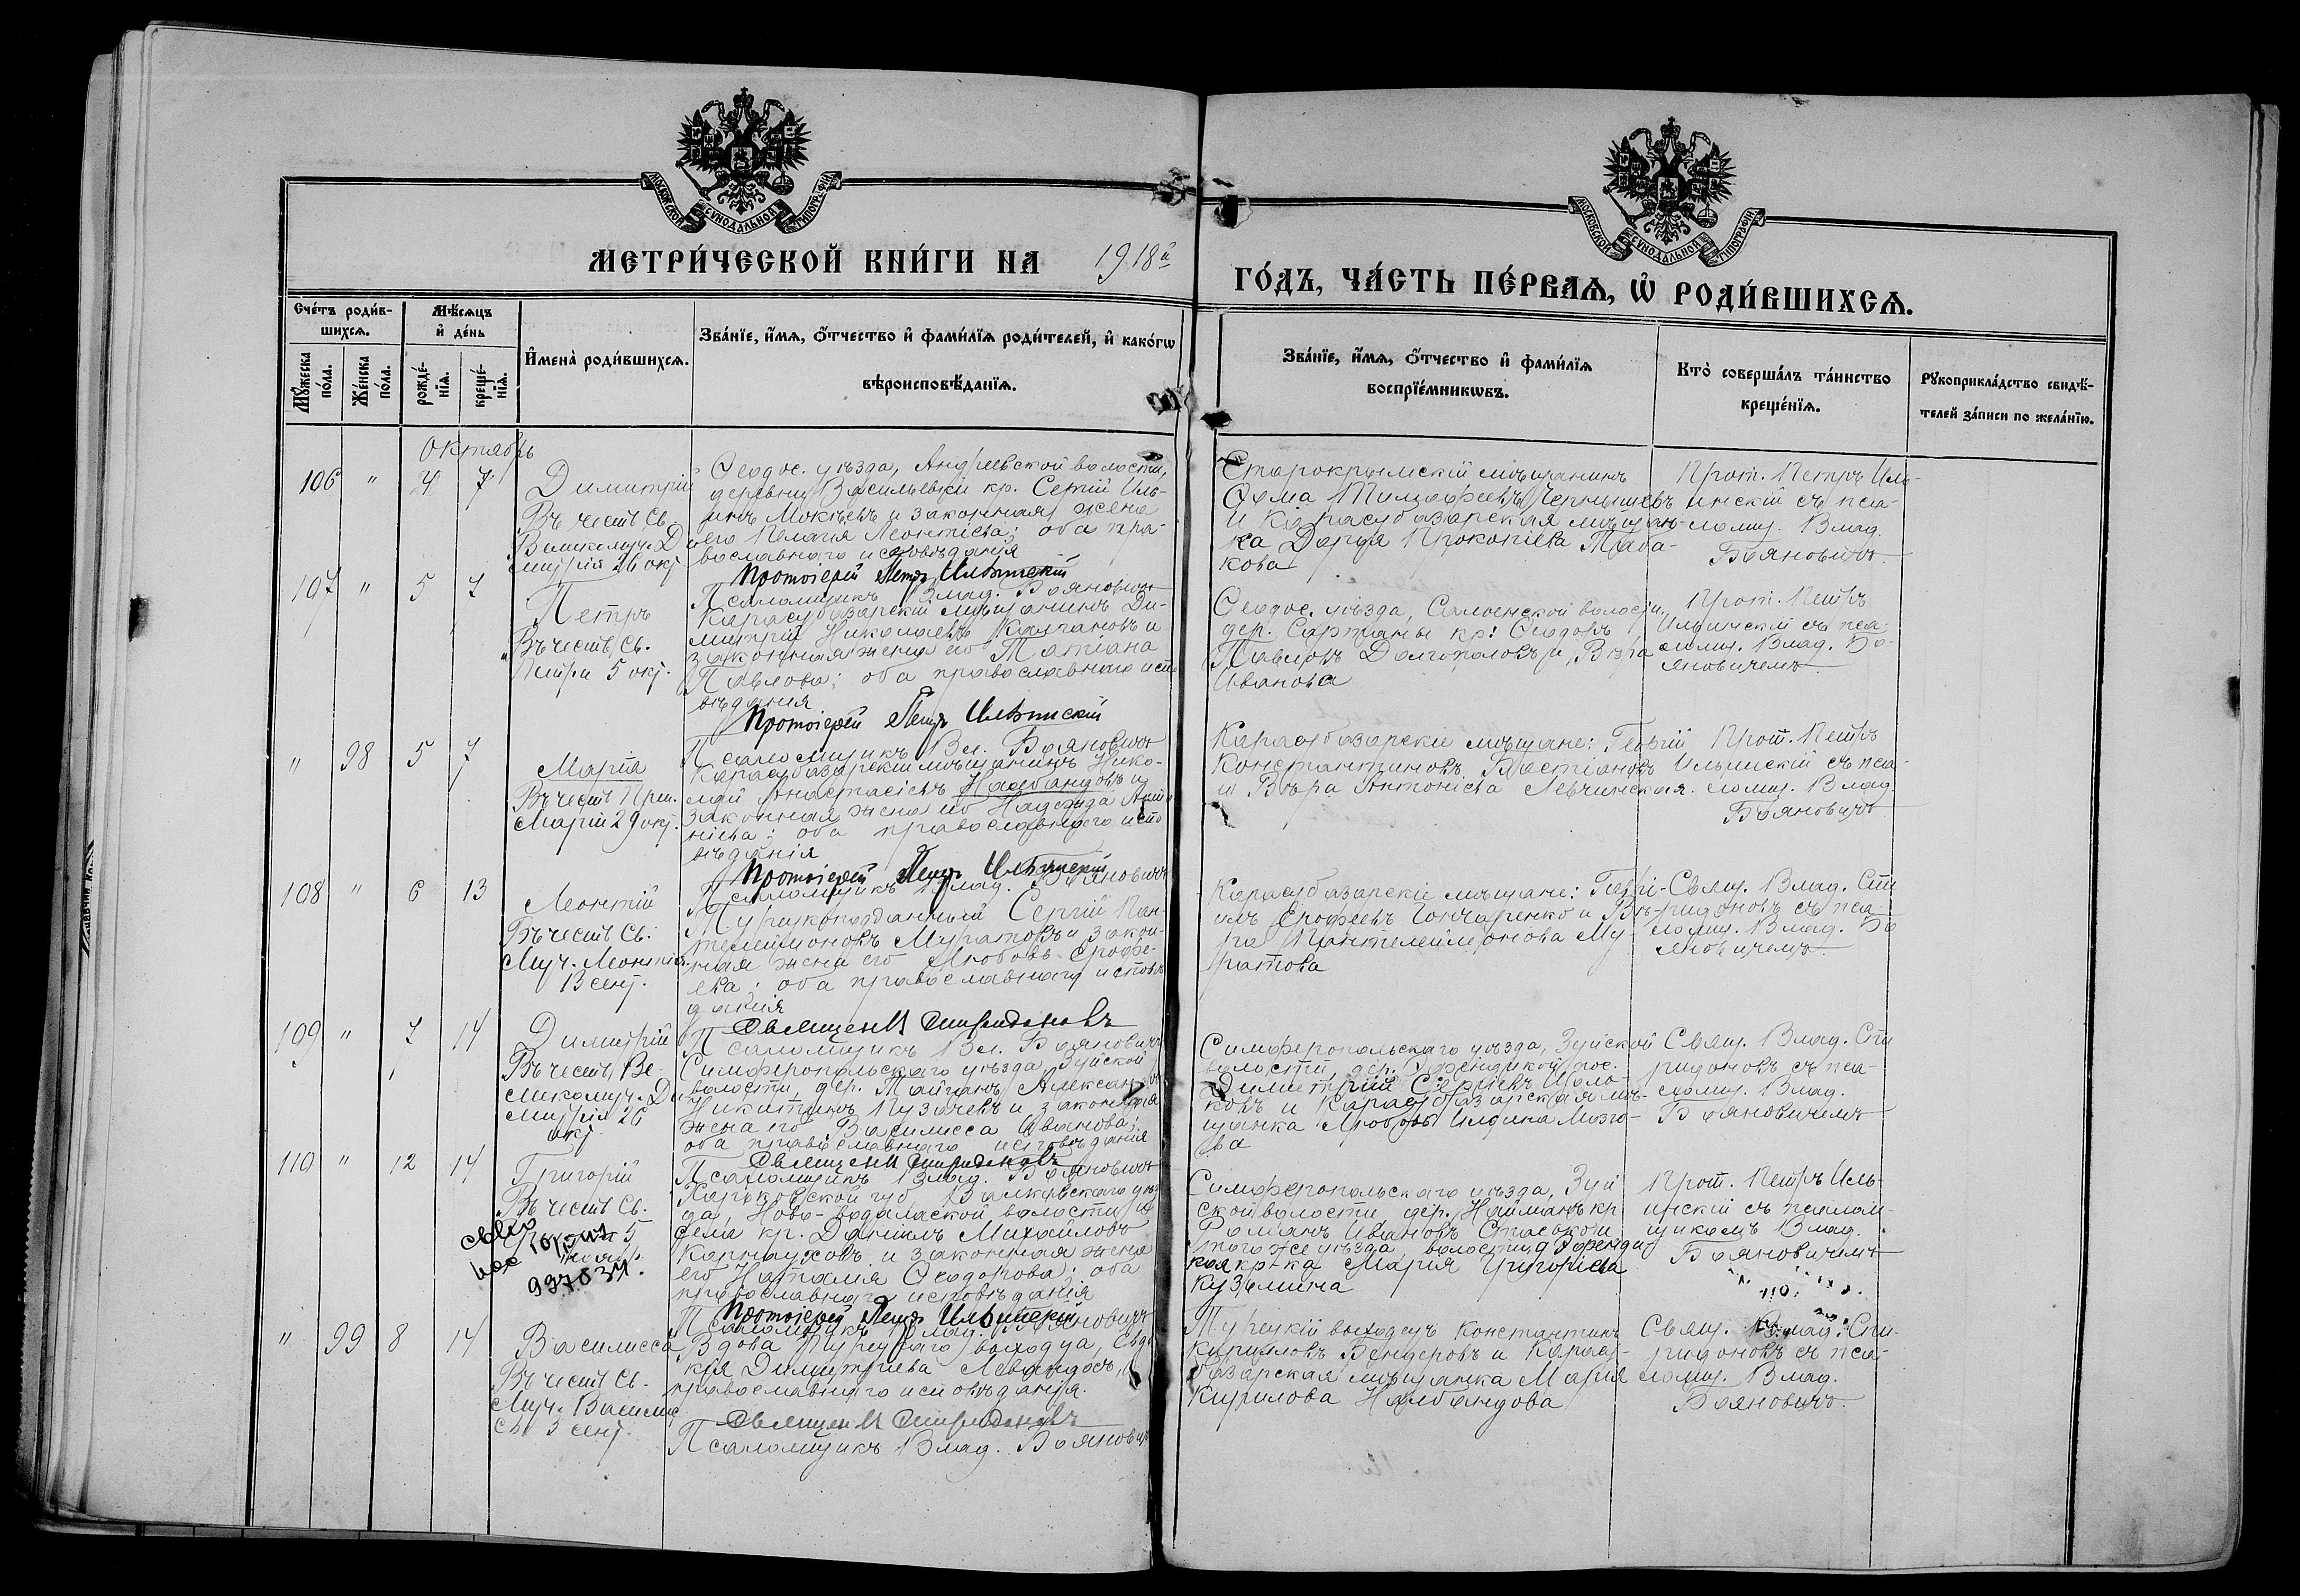 МОСКОВСКОЙ СѴНОДАЛЬНОЙ ТИПОГРАФІИ
МОСКОВСКОЙ СѴНОДАЛЬНОЙ ТИПОГРАФІИ
МЕТРИ́ЧЕСКОЙ КНИ́ГИ НА 1918й
ГО́ДЪ, ЧА́СТЬ ПЕ́РВАѦ, Ѡ РОДИ́ВШИХСѦ.
Сче́тъ роди́в-
шихсѧ.
Мѹжеска по́ла.
Же́нска по́ла.
Мѣ́сѧцъ
и҆ де́нь
рожде́-
нїѧ.
креще́-
нїѧ.
И҆мена̀ роди́вшихсѧ.
Зва́нїе, и҆́мѧ, ѻ҆́тчество и҆ фами́лїѧ роди́телей, и҆ како́гѡ
вѣроисповѣ́данїѧ.
Зва́нїе, и҆́мѧ, ѻ҆́тчество и҆ фами́лїѧ
воспрїе́мникѡвъ.
Кто̀ соверша́лъ та́инство
креще́нїѧ.
Рѹкоприкла́дство свидѣ́-
телей за́писи по жела́нїю.
Октябрь
106 " 4 7
Димитрій
Въ честь Св.
Великомуч. Ди
митрія 26 окт.
Ѳеодос. уѣзда, Андреевской волости,
деревни Васильевки кр. Сергій Иль-
инъ Мокѣевъ и законная жена
его Пелагія Леонтіева; оба пра-
вославнаго исповѣданія
Протоіерей Петръ Ильинскій
Псаломщикъ Влад. Бояновичъ
Старокрымскій мѣщанинъ
Ѳома Тимофеевъ Чернышевъ
и Карасубазарская мѣщан-
ка Дарья Прокопіева Таба-
кова
Прот. Петръ Иль-
инскій съ пса-
ломщ. Влад.
Бояновичъ
107 " 5 7
Петръ
Въ честь Св.
Петра 5 окт.
Карасубазарскій мѣщанинъ Ди-
митрій Николаевъ Калпановъ и
законная жена его Татіана
Павлова; оба православнаго испо
вѣданія
Протоіерей Петръ Ильинскій
Псаломщикъ Вл. Бояновичъ
Ѳеодос. уѣзда, Салынской волости,
дер. Сартаны кр: Ѳеодоръ
Павловъ Долгополовъ и Вѣра
Иванова
Прот. Петръ
Ильинскій съ пса-
ломщ. Влад. Бо-
яновичемъ
" 98 5 7
Марія
Въ честь Преп.
Маріи 29 окт.
Карасубазарскій мѣщанинъ Нико-
лай Анастасіевъ Налбандовъ и
законная жена его Надежда Анто
ніева; оба православнаго испо
вѣданія
Протоіерей Петръ Ильинскій
Псаломщикъ Влад. Бояновичъ
Карасубазарскіе мѣщане: Георгій
Константиновъ Бостановъ
и Вѣра Антоніева Левчинская.
Прот. Петръ
Ильинскій съ пса-
ломщ. Влад.
Бояновичъ
108 " 6 13
Леонтій
Въ честь Св.
Муч. Леонтія
13 сент.
Турецкоподданный Сергій Пан-
телеймоновъ Муратовъ и закон-
ная жена его Любовь Ерофе-
ева; оба православнаго исповѣ
данія
Священникъ Спиридоновъ
Псаломщикъ Вл. Бояновичъ
Карасубазарскіе мѣщане: Гаврі-
илъ Ерофеевъ Гончаренко и Вѣ-
ра Пантелеймонова Му-
ратова
Свящ. Влад. Спи
ридоновъ съ пса-
ломщ. Влад. Бо
яновичемъ
109 " 7 14
Димитрій
Въ честь Ве-
ликомуч. Ди
митрія 26
окт.
Симферопольскаго уѣзда, Зуйской
волости, дер. Тайганъ Александръ
Никитинъ Пузачевъ и законная
жена его Василисса Иванова;
оба православнаго исповѣданія
Священникъ Спиридоновъ
Псаломщикъ Влад. Бояновичъ
Симферопольскаго уѣзда, Зуйской
волости, дер.
Димитрій Сергіевъ
ковъ и Карасубазарская мѣ-
щанка Любовь Ильина Мозго-
ва
Свящ. Влад. Спи
ридоновъ съ пса-
ломщ. Влад.
Бояновичемъ
110 " 12 14
Григорій
Въ честь Св.
5
997634.
Харьковской губ. Валковскаго уѣз
да, Ново-Водолаской волости и
села кр. Даніилъ Михайловъ
Карнауховъ и законная жена
его Наталія Ѳеодорова; оба
православнаго исповѣданія
Протоіерей Петръ Ильинскій
Псаломщикъ Влад. Бояновичъ
Симферопольскаго уѣзда, Зуй
ской волости дер. Найманъ кр
Романъ Ивановъ
того же уѣзда, волости
кр-ка Марія Григоріева
Кузьмина
Прот. Петръ Иль-
инскій съ псалом-
щикомъ Влад.
Бояновичемъ
" 99 8 14
Василисса
Въ честь Св.
Муч. Василис
сы 3 сент.
Вдова Турецкаго выходца, Евдо
кія Димитріева Левандосъ,
православнаго исповѣданія.
Священникъ Спиридоновъ
Псаломщикъ Влад. Бояновичъ
Турецкій выходецъ Константинъ
Кириловъ Бендеровъ и Карасу-
базарская мѣщанка Марія
Кирилова Налбандова
Свящ. Влад. Спи-
ридоновъ съ пса-
ломщ. Влад.
Бояновичъ.